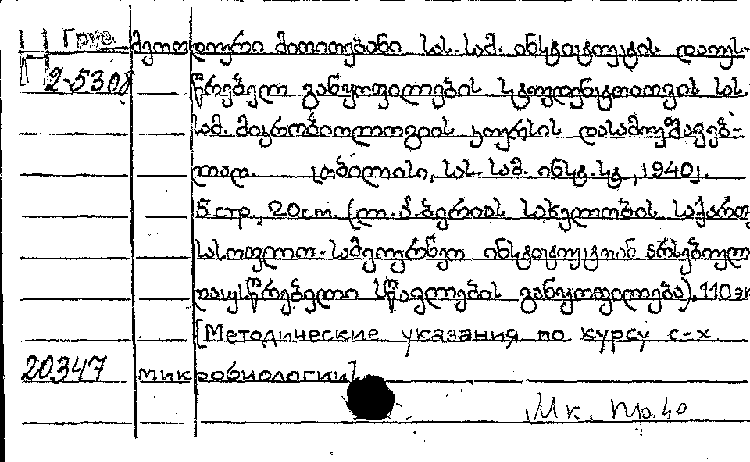 Груз. მეთოდიური მითითებანი სას.-სამ. ინსტიტუტის დაუს-
2-5308 წრებელ განყოფილების სტუდენტთათვის სას.
სამ. მიკრობიოლოგიის კურსის დასამუშავებ-
ლად. თბილისი, სას. სამ. ინსტ. სტ., 1940.
5 стр., 20 см. (ლ. პ. ბერიას სახელობის საქართ.
სასოფლო-სამეურნეო ინსტიტუტთან არსებული
დაუსწრებელი სწავლების განყოფილება). 110 эк
[Методические указания по курсу с-х
20347 микробиологии]
Мк. пр. 40